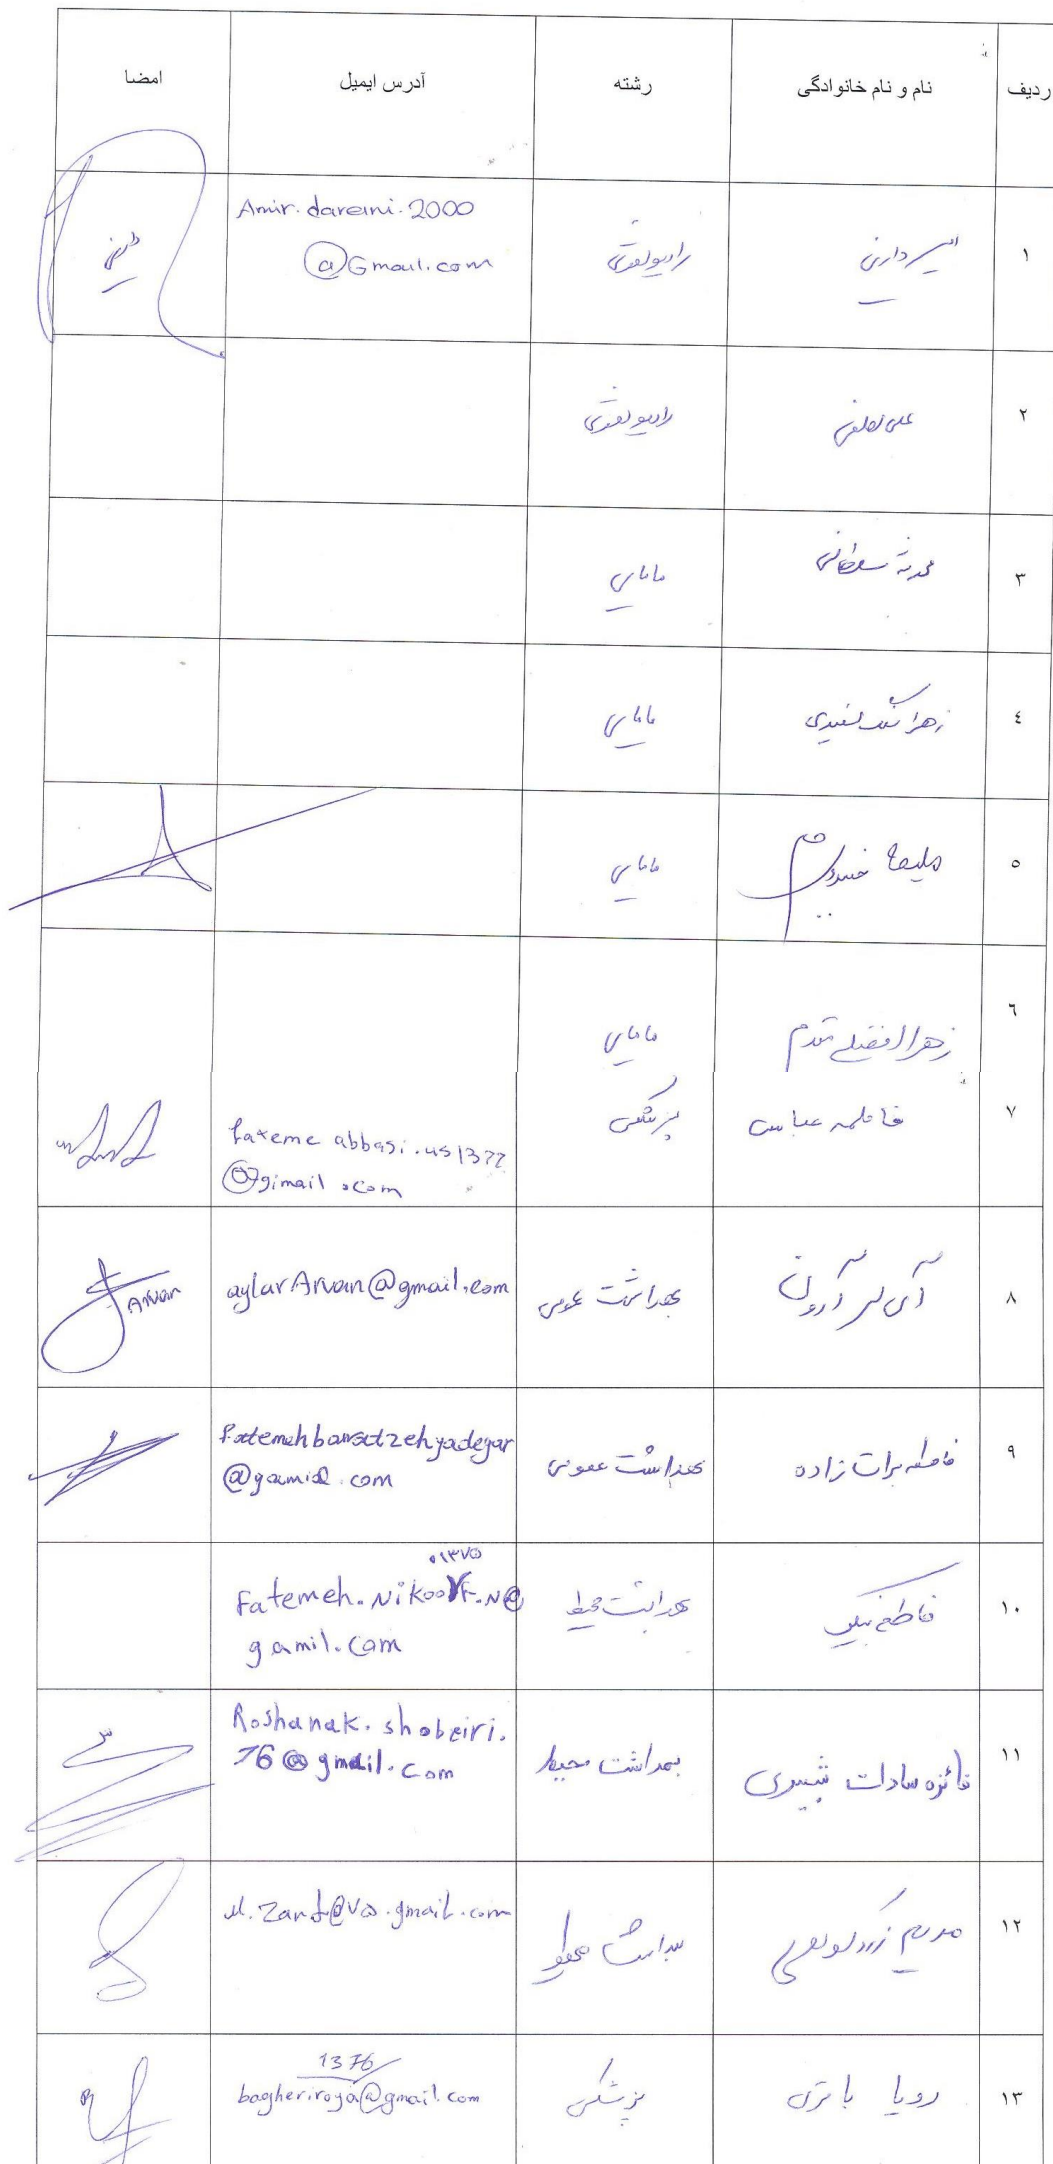 ردیف
نام و نام خانوادگی
رشته
آدرس ایمیل
امضا
۱
امیر دارینی
رادیولوژی
Amir.dareini.2000
@Gmail.com
۲
علی
رادیولوژی
۳
محدثه سلطانی
مامایی
٤
زهرا سنگ سفیدی
مامایی
٥
ملیحه
مامایی
٦
زهرا افضلی مقدم
مامایی
۷
فاطمه عباسی
پزشکی
fateme abbasi.us1377
@gimail.com
۸
آی لر آروان
بهداشت عمومی
aylarArvan@gmail.com
Arvan
۹
فاطمه برات زاده
بهداشت عمومی
Fatemehbaratzehyadegar
@gamil.com
۱۰
فاطمه نیکو
بهداشت محیط
۰۱۳۷۵
Fatemeh.Nikoo
gamil.com
۱۱
فائزه سادات شبیری
بهداشت محیط
Roshanak.shobeiri.
76@gmail.com
۱۲
مریم زرد
بهداشت محیط
M.Zard@۷۵.gmail.com
۱۳
رویا باقری
پزشکی
1376
bagheriroya@gmail.com